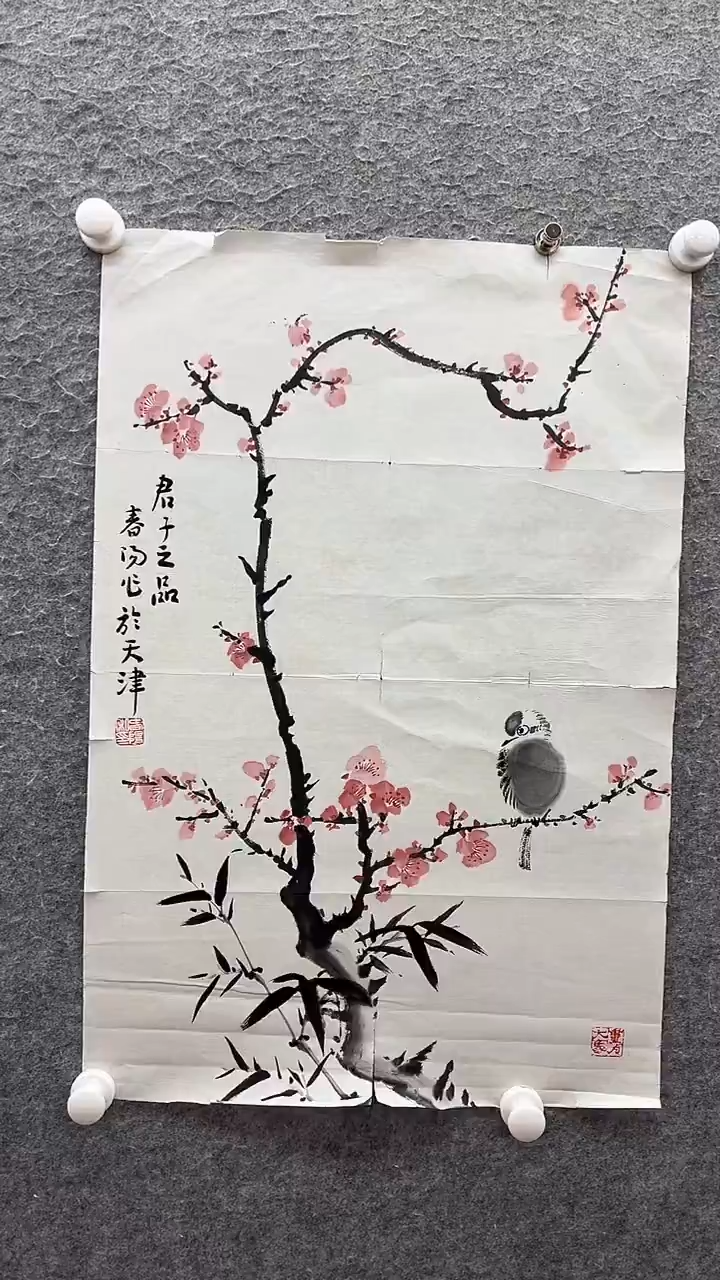 君子之品
春阳作於天津